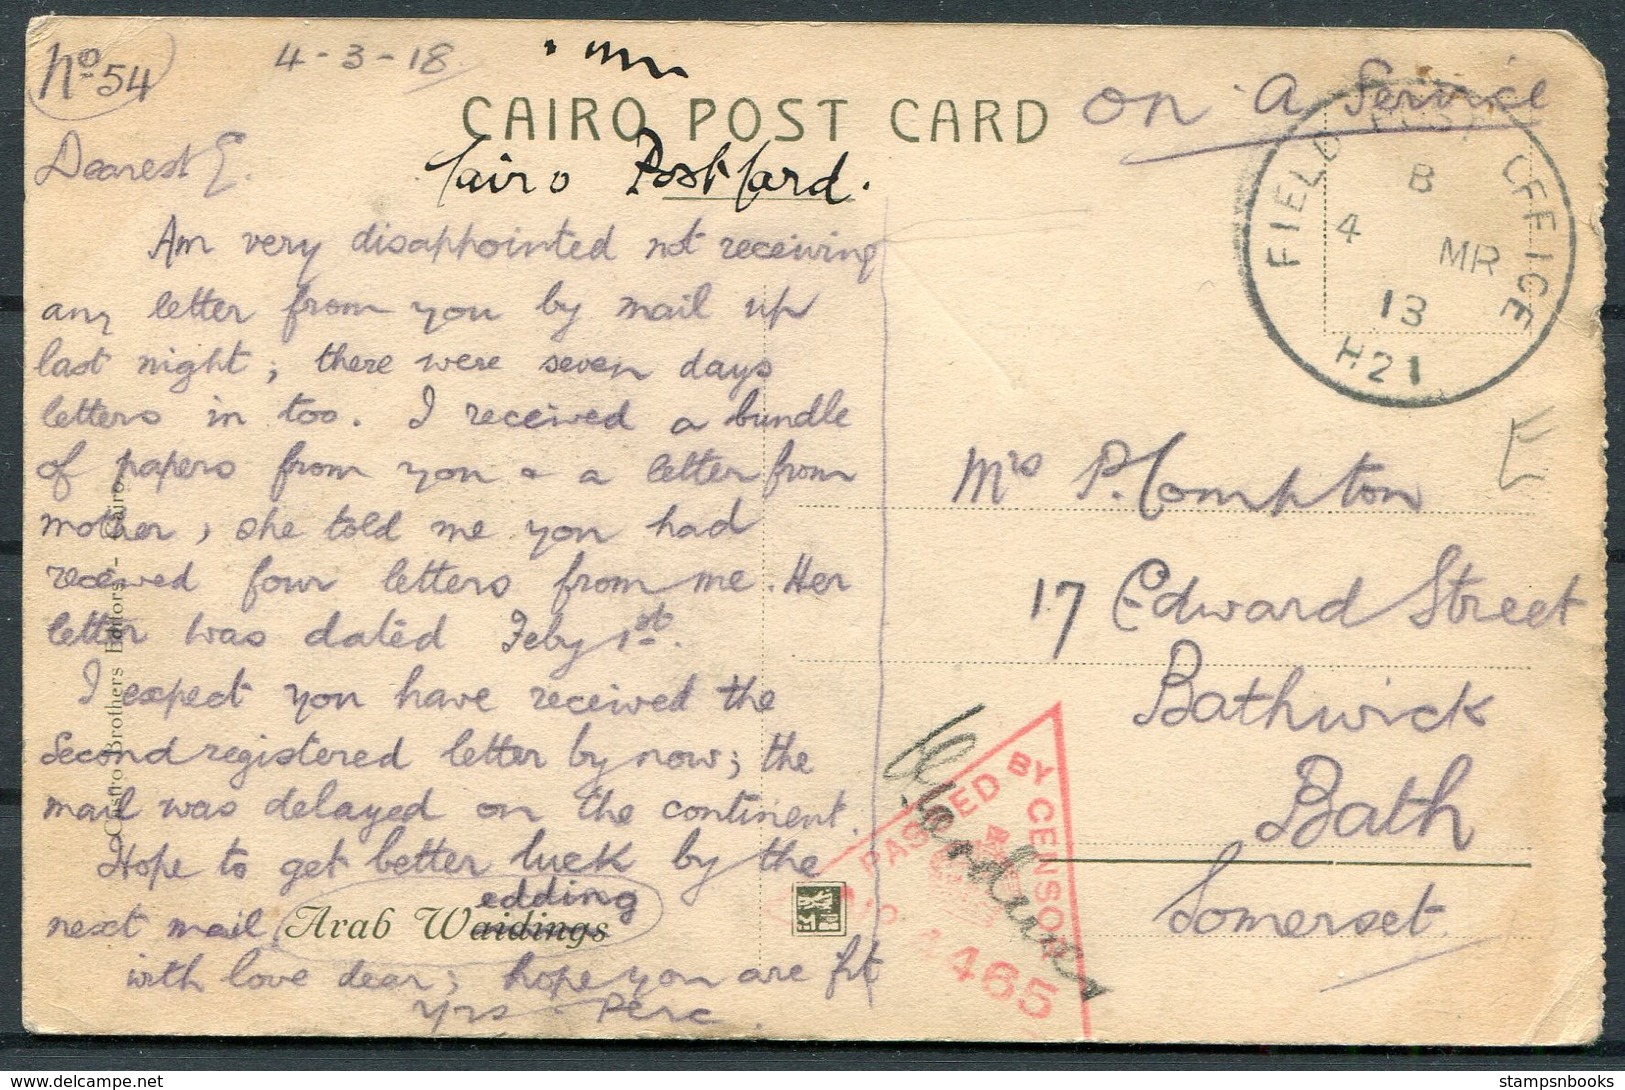 No 54
4-3-18
CAIRO POST CARD
Cairo Post Card.
on a Service
Dearest E.
Am very disappointed not receiving
any letter from you by mail up
last night; there were seven days
letters in too. I received a bundle
of papers from you & a letter from
mother, she told me you had
received four letters from me. Her
letter was dated Feby 1st.
I expect you have received the
Second registered letter by now; the
mail was delayed on the continent.
Hope to get better luck by the
next mail
with love dear; hope you are fit
yrs Perc.
edding
Arab Waidings
Castro Brothers Editors - Cairo
FIELD POST OFFICE
B
4 MR
18
H21
Mrs P. Compton
17 Edward Street
Bathwick
Bath
Somerset
PASSED BY CENSOR
No 4465